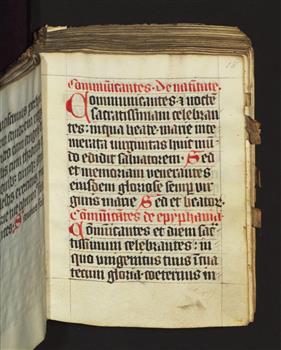 Com̄unicantes. De natiuitate.
Communicantes ⁊ noctem
sacratissimam celebran
tes: in qua beate marie inte
merata uirginitas huic mū
do edidit saluatorem. Sed
et memoriam venerantes
eiusdem gloriose semp̄ uir
ginis marie Sed et beator.
Com̄unicātes de epyphania
Com̄unicantes et diem sacra
tissimum celebrantes: in
quo vnigenitus tuus ī tua
tecum gloria coeternus in